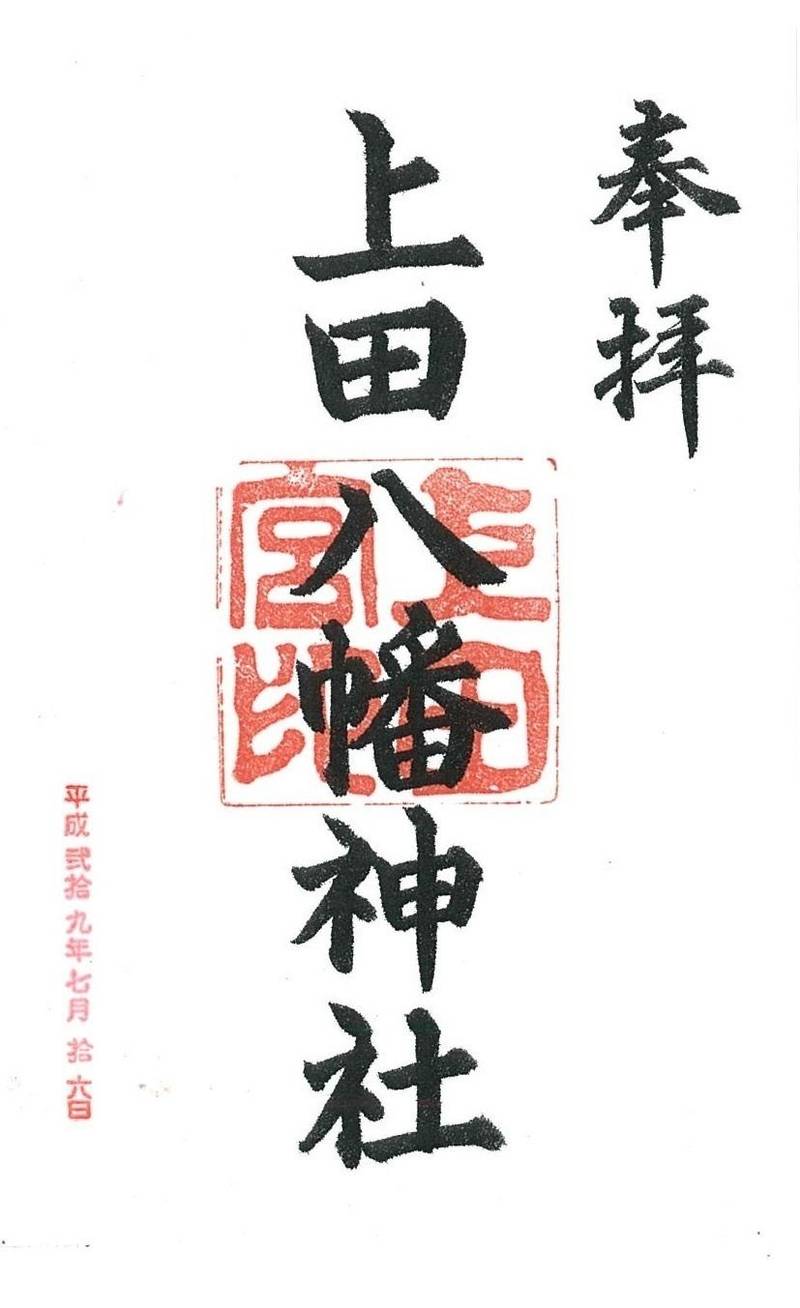 奉拝
上田八幡神社
上田
宮印
平成弐拾九年七月拾六日